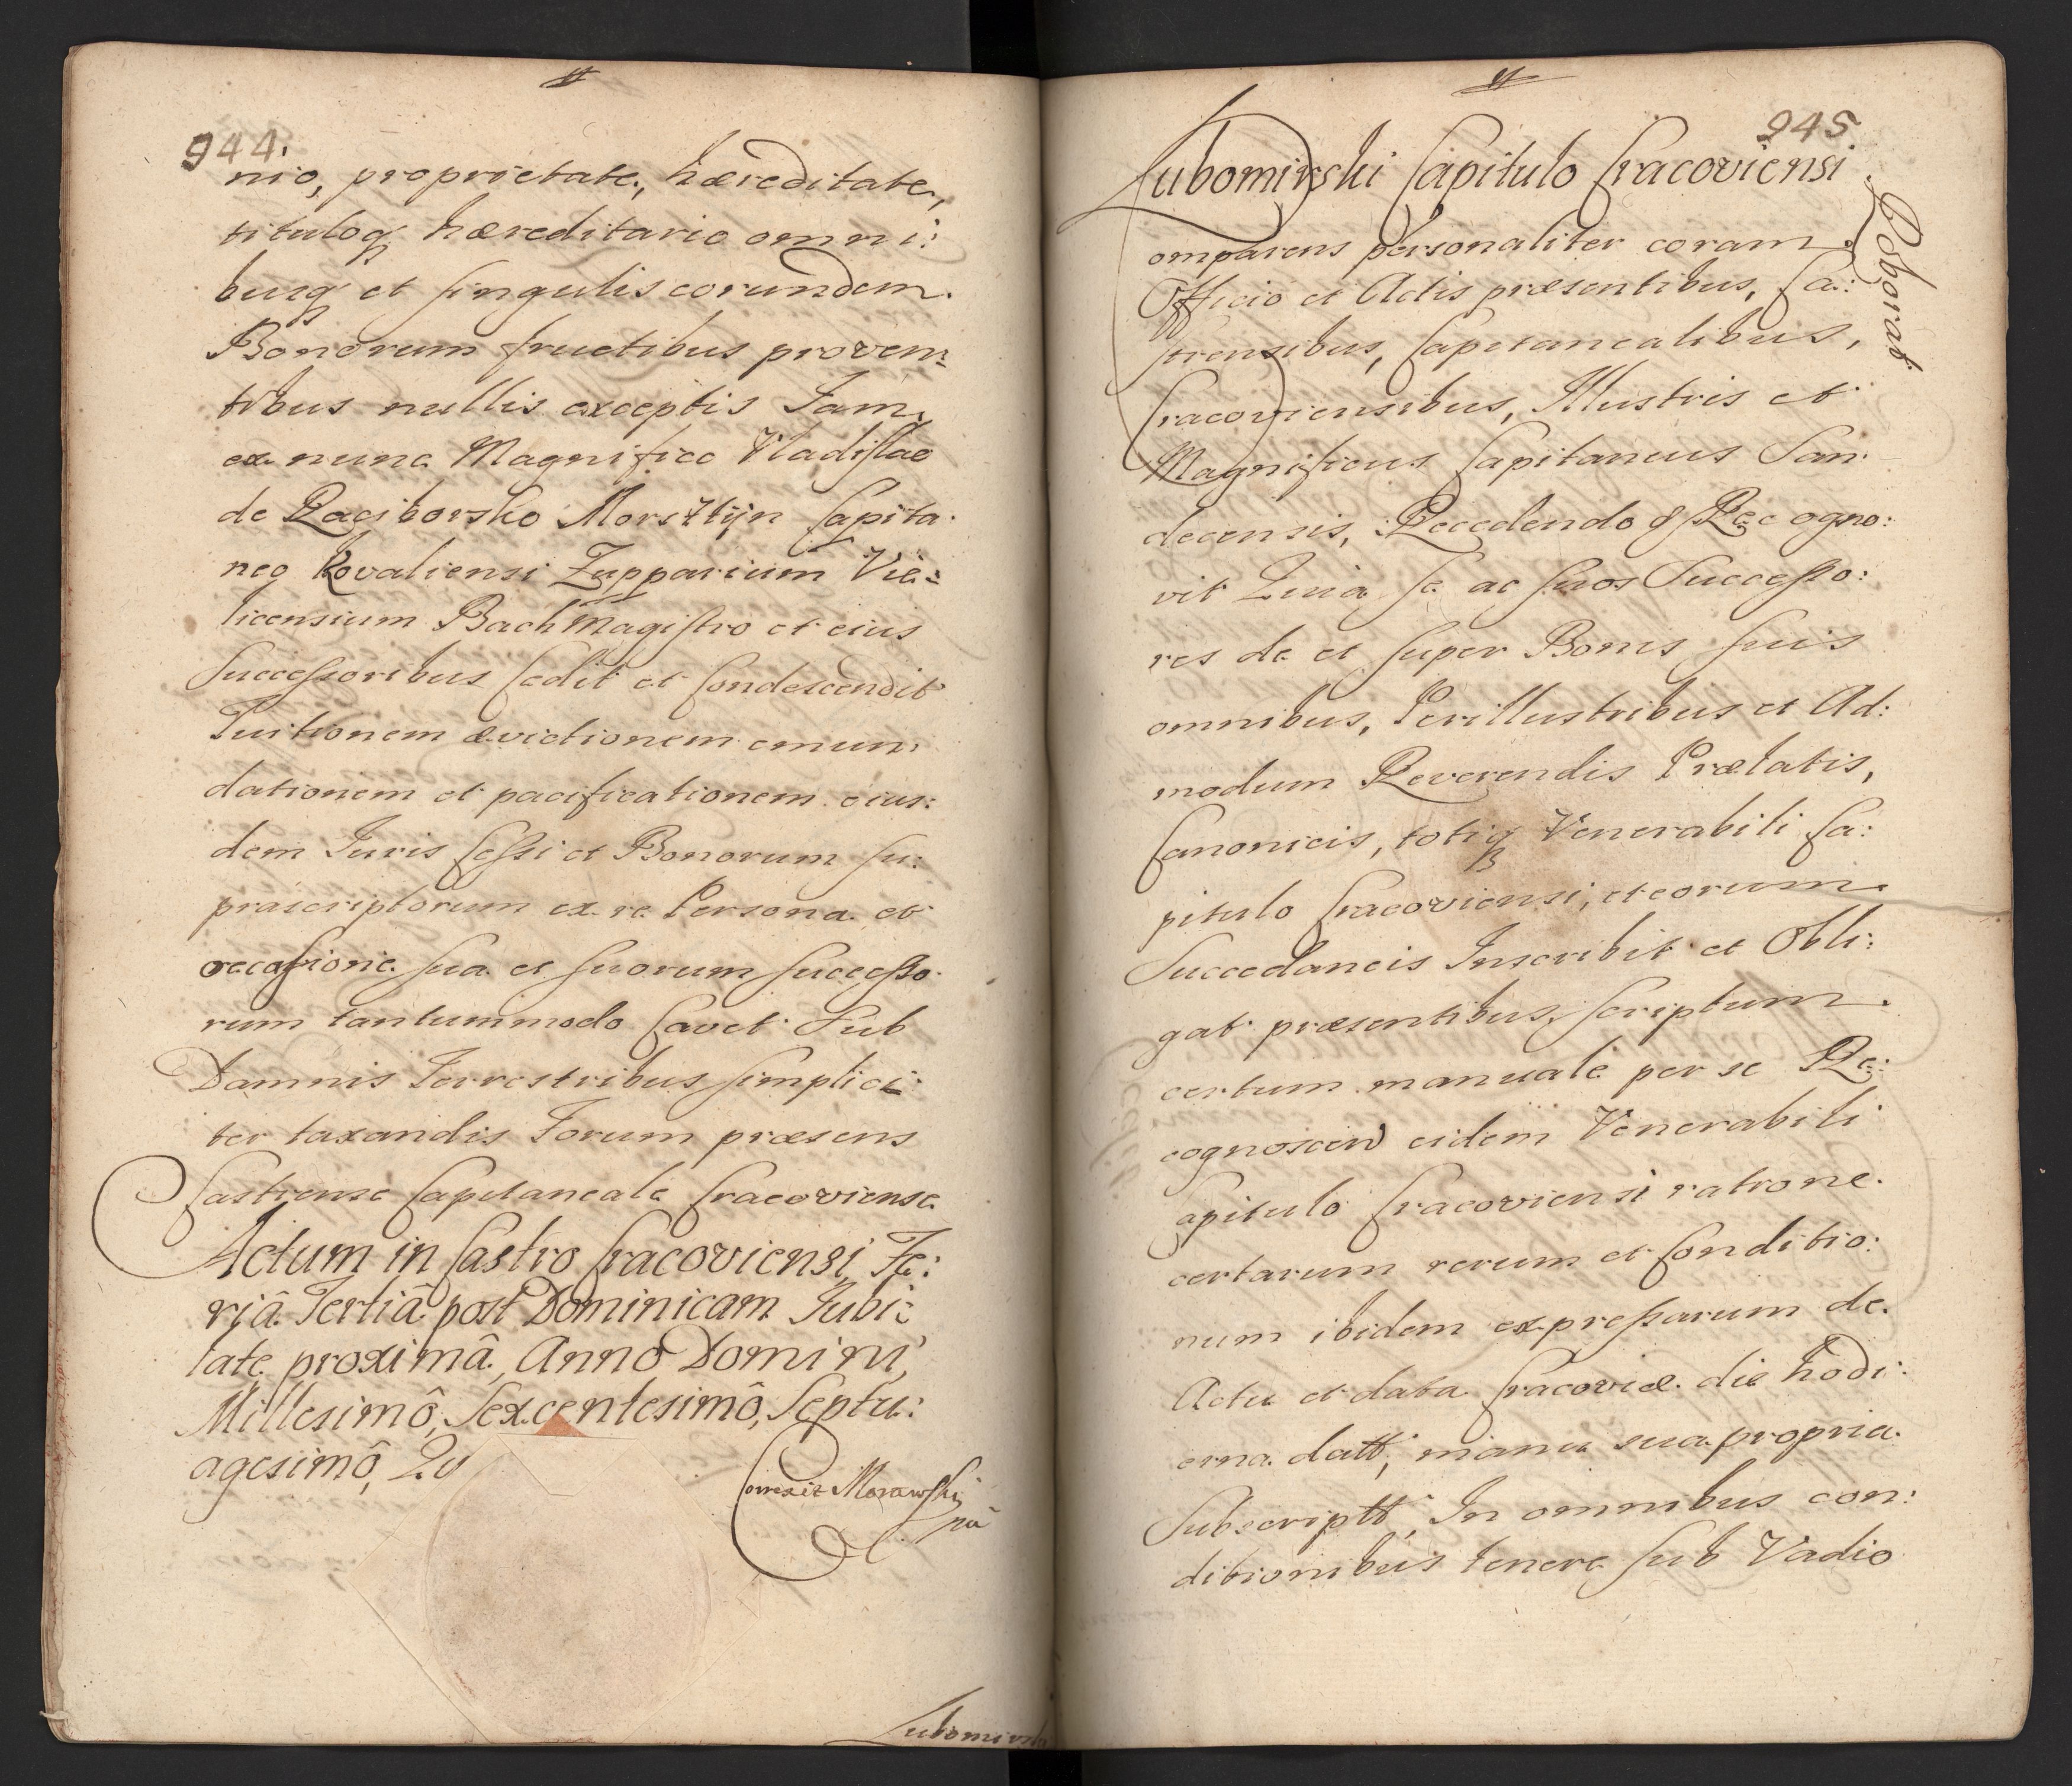 944.
nio, proprietate, hæreditate,
tituloq hæreditario omni:
busq et singulis eorundem
Bonorum fructibus proven:
tibus nullis exceptis Iam
ex nunc Magnifico Vladislao
de Raciborsko Morsztÿn Capita
neo Kovaliensi Zupparium Vie:
licensium BachMagistro et eius
Successoribus Cedit et Condescendit
Tuitionem ævictionem emun:
dationem et pacificationem eius:
dem Iuris Cessi et Bonorum su:
praicriptorum ex re Persona et
occasione sua et suorum Successo
rum tantummodo Cavet Sub
Damnis Terrestribus simplici:
ter taxandis Forum præsens
Castrense Capitaneale Cracoviense
Actum in Castro Cracoviensi Fe:
riâ Tertiâ post Dominicam Iubi:
late proximâ, Anno Domini
Millesimô, Sexcentesimô, Septu:
agesimô, Qu
Correxit Morawski
pa
Lubomirski
945
Lubomirski Capitulo Cracoviensi
Roborat
Comparens personaliter coram
Officio et Actis præsentibus, Ca:
strensibus, Capitanealibus,
Cracoviensibus, Illustris et
Magnificus Capitaneus San
decensis, Recedendo & Recogno:
vit Quia se ac suos Successo:
res de et super Bonis suis
omnibus, Perillustribus et Ad:
modum Reverendis Prælatis,
Canonicis, totiq Venerabili Ca:
pitulo Cracoviensi, et eorum
Succedaneis Inscribit et Obli:
gat præsentibus, scriptum
certum manuale per se Re:
cognoscen eidem Venerabili
Capitulo Cracoviensi ratione
certarum rerum et Conditio:
num ibidem expressarum de
Actu et data Cracoviæ die hodi:
erna datt, manu sua propria
Subscriptt, In omnibus con:
ditionibus tenere sub Vadio